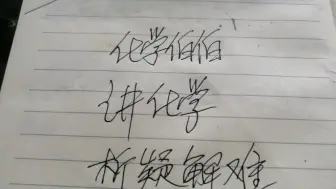 化学伯伯
讲化学
析疑解难